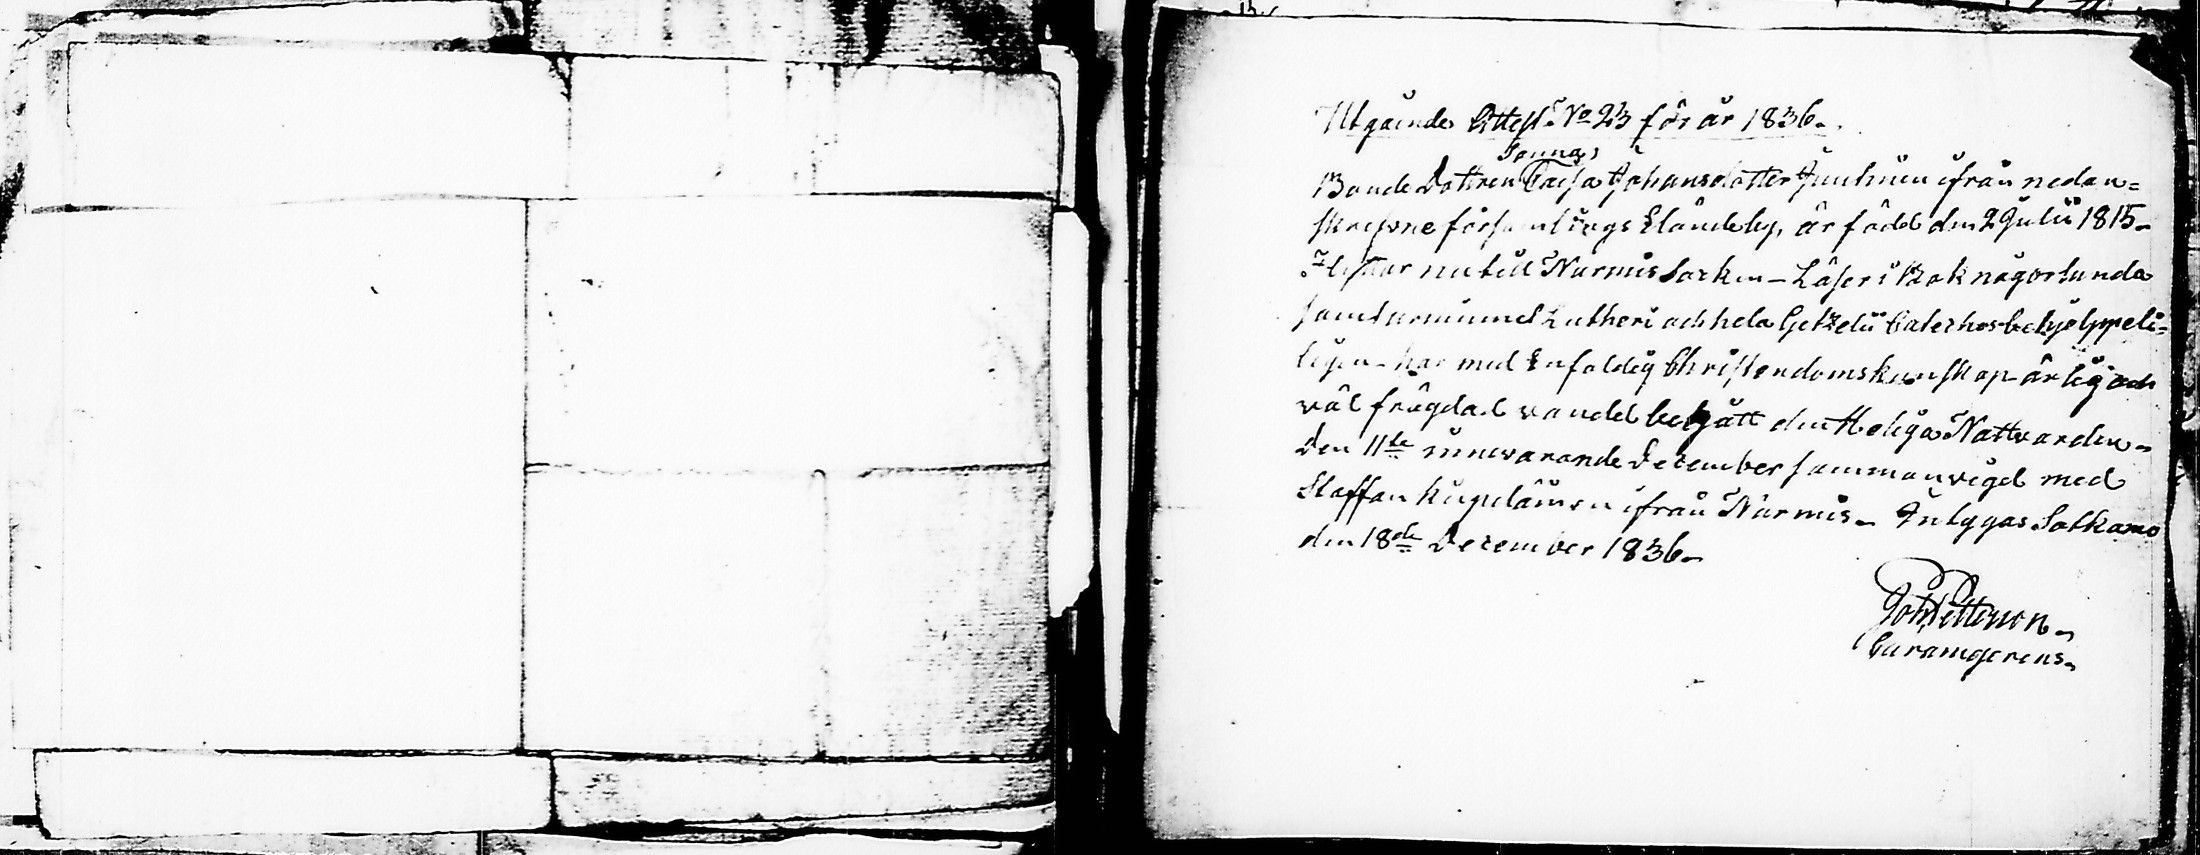 Utgående Attest No 23 för år 1836.
Bonde Dottren Caisa Johansdotter Juntunen ifrån nedan=
skrefvne församlings by, är född den 2 Julii 1815.
Flyttar nu till Nurmis Socken - Läser i Bok någorlunda
samt urminnet Lutheri och hela Getzelii Cateches behjelppeli=
ligen - har med Enfaldig Christendomskunskap ärlig och
väl frägdad vandel begått den Heliga Nattvarden -
Den 11te innevarande December sammanvigd med
Staffan ifrån Nurmis - Intygas Sotkamo
den 18de December 1836 -
Joh. Petterson.
Curamgerens.